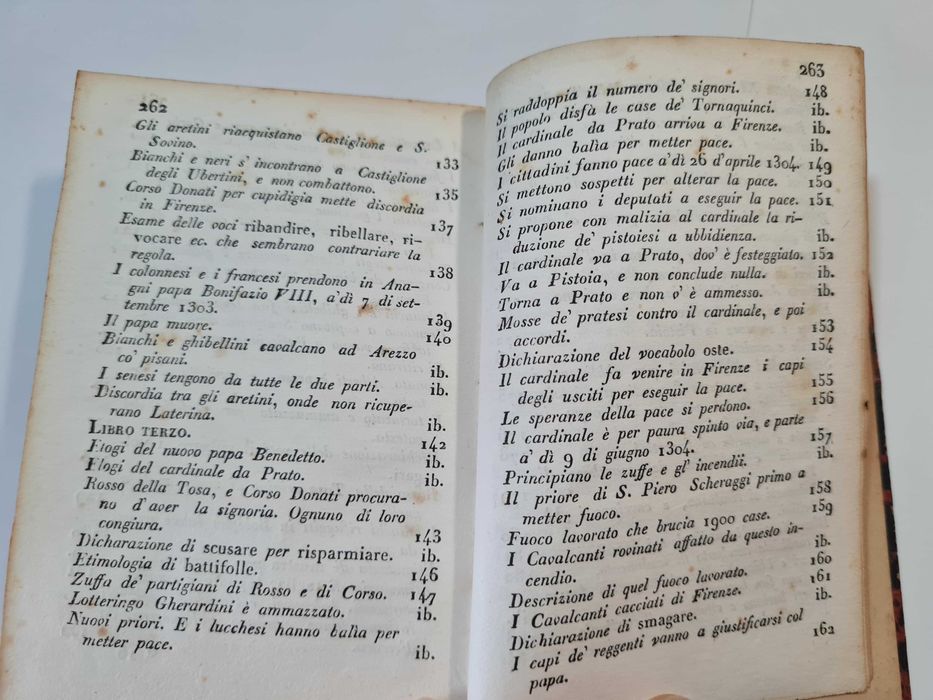 262
Gli aretini riacquistano Castiglione e S.
Sovino. 133
Bianchi e neri s' incontrano a Castiglione
degli Ubertini, e non combattono. 135
Corso Donati per cupidigia mette discordia
in Firenze. 137
Esame delle voci ribandire, ribellare, ri-
vocare ec. che sembrano contrariare la
regola. 138
I colonnesi e i francesi prendono in Ana-
gni papa Bonifazio VIII, a'dì 7 di set-
tembre 1303. 139
Il papa muore. 140
Bianchi e ghibellini cavalcano ad Arezzo
co' pisani. ib.
I senesi tengono da tutte le due parti. ib.
Discordia tra gli aretini, onde non ricupe-
rano Laterina. ib.
LIBRO TERZO.
Elogi del nuovo papa Benedetto. 142
Elogi del cardinale da Prato. ib.
Rosso della Tosa, e Corso Donati procura- ib.
no d'aver la signoria. Ognuno di loro
congiura. 143
Dicharazione di scusare per risparmiare. ib.
Etimologia di battifolle. 146
Zuffa de' partigiani di Rosso e di Corso. 147
Lotteringo Gherardini è ammazzato. ib.
Nuovi priori. E i lucchesi hanno balìa per
metter pace. ib.
263
Si raddoppia il numero de' signori. 148
Il popolo disfà le case de' Tornaquinci. ib.
Il cardinale da Prato arriva a Firenze. ib.
Gli danno balìa per metter pace. ib.
I cittadini fanno pace a'dì 26 d'aprile 1304. 149
Si mettono sospetti per alterar la pace. 150
Si nominano i deputati a eseguir la pace. 151
Si propone con malizia al cardinale la ri-
duzione de' pistoiesi a ubbidienza. ib.
Il cardinale va a Prato, dov' è festeggiato. 152
Va a Pistoia, e non conclude nulla. ib.
Torna a Prato e non v' è ammesso. ib.
Mosse de' pratesi contro il cardinale, e poi
accordi. 153
Dichiarazione del vocabolo oste. 154
Il cardinale fa venire in Firenze i capi
degli usciti per eseguir la pace. 155
Le speranze della pace si perdono. 156
Il cardinale è per paura spinto via, e parte
a' dì 9 di giugno 1304. 157
Principiano le zuffe e gl' incendii. ib.
Il priore di S. Piero Scheraggi primo a
metter fuoco. 158
Fuoco lavorato che brucia 1900 case. 159
I Cavalcanti rovinati affatto da questo in-
cendio. ib.
Descrizione di quel fuoco lavorato. 160
I Cavalcanti cacciati di Firenze. 161
Dichiarazione di smagare. ib.
I capi de' reggenti vanno a giustificarsi col
papa. 162